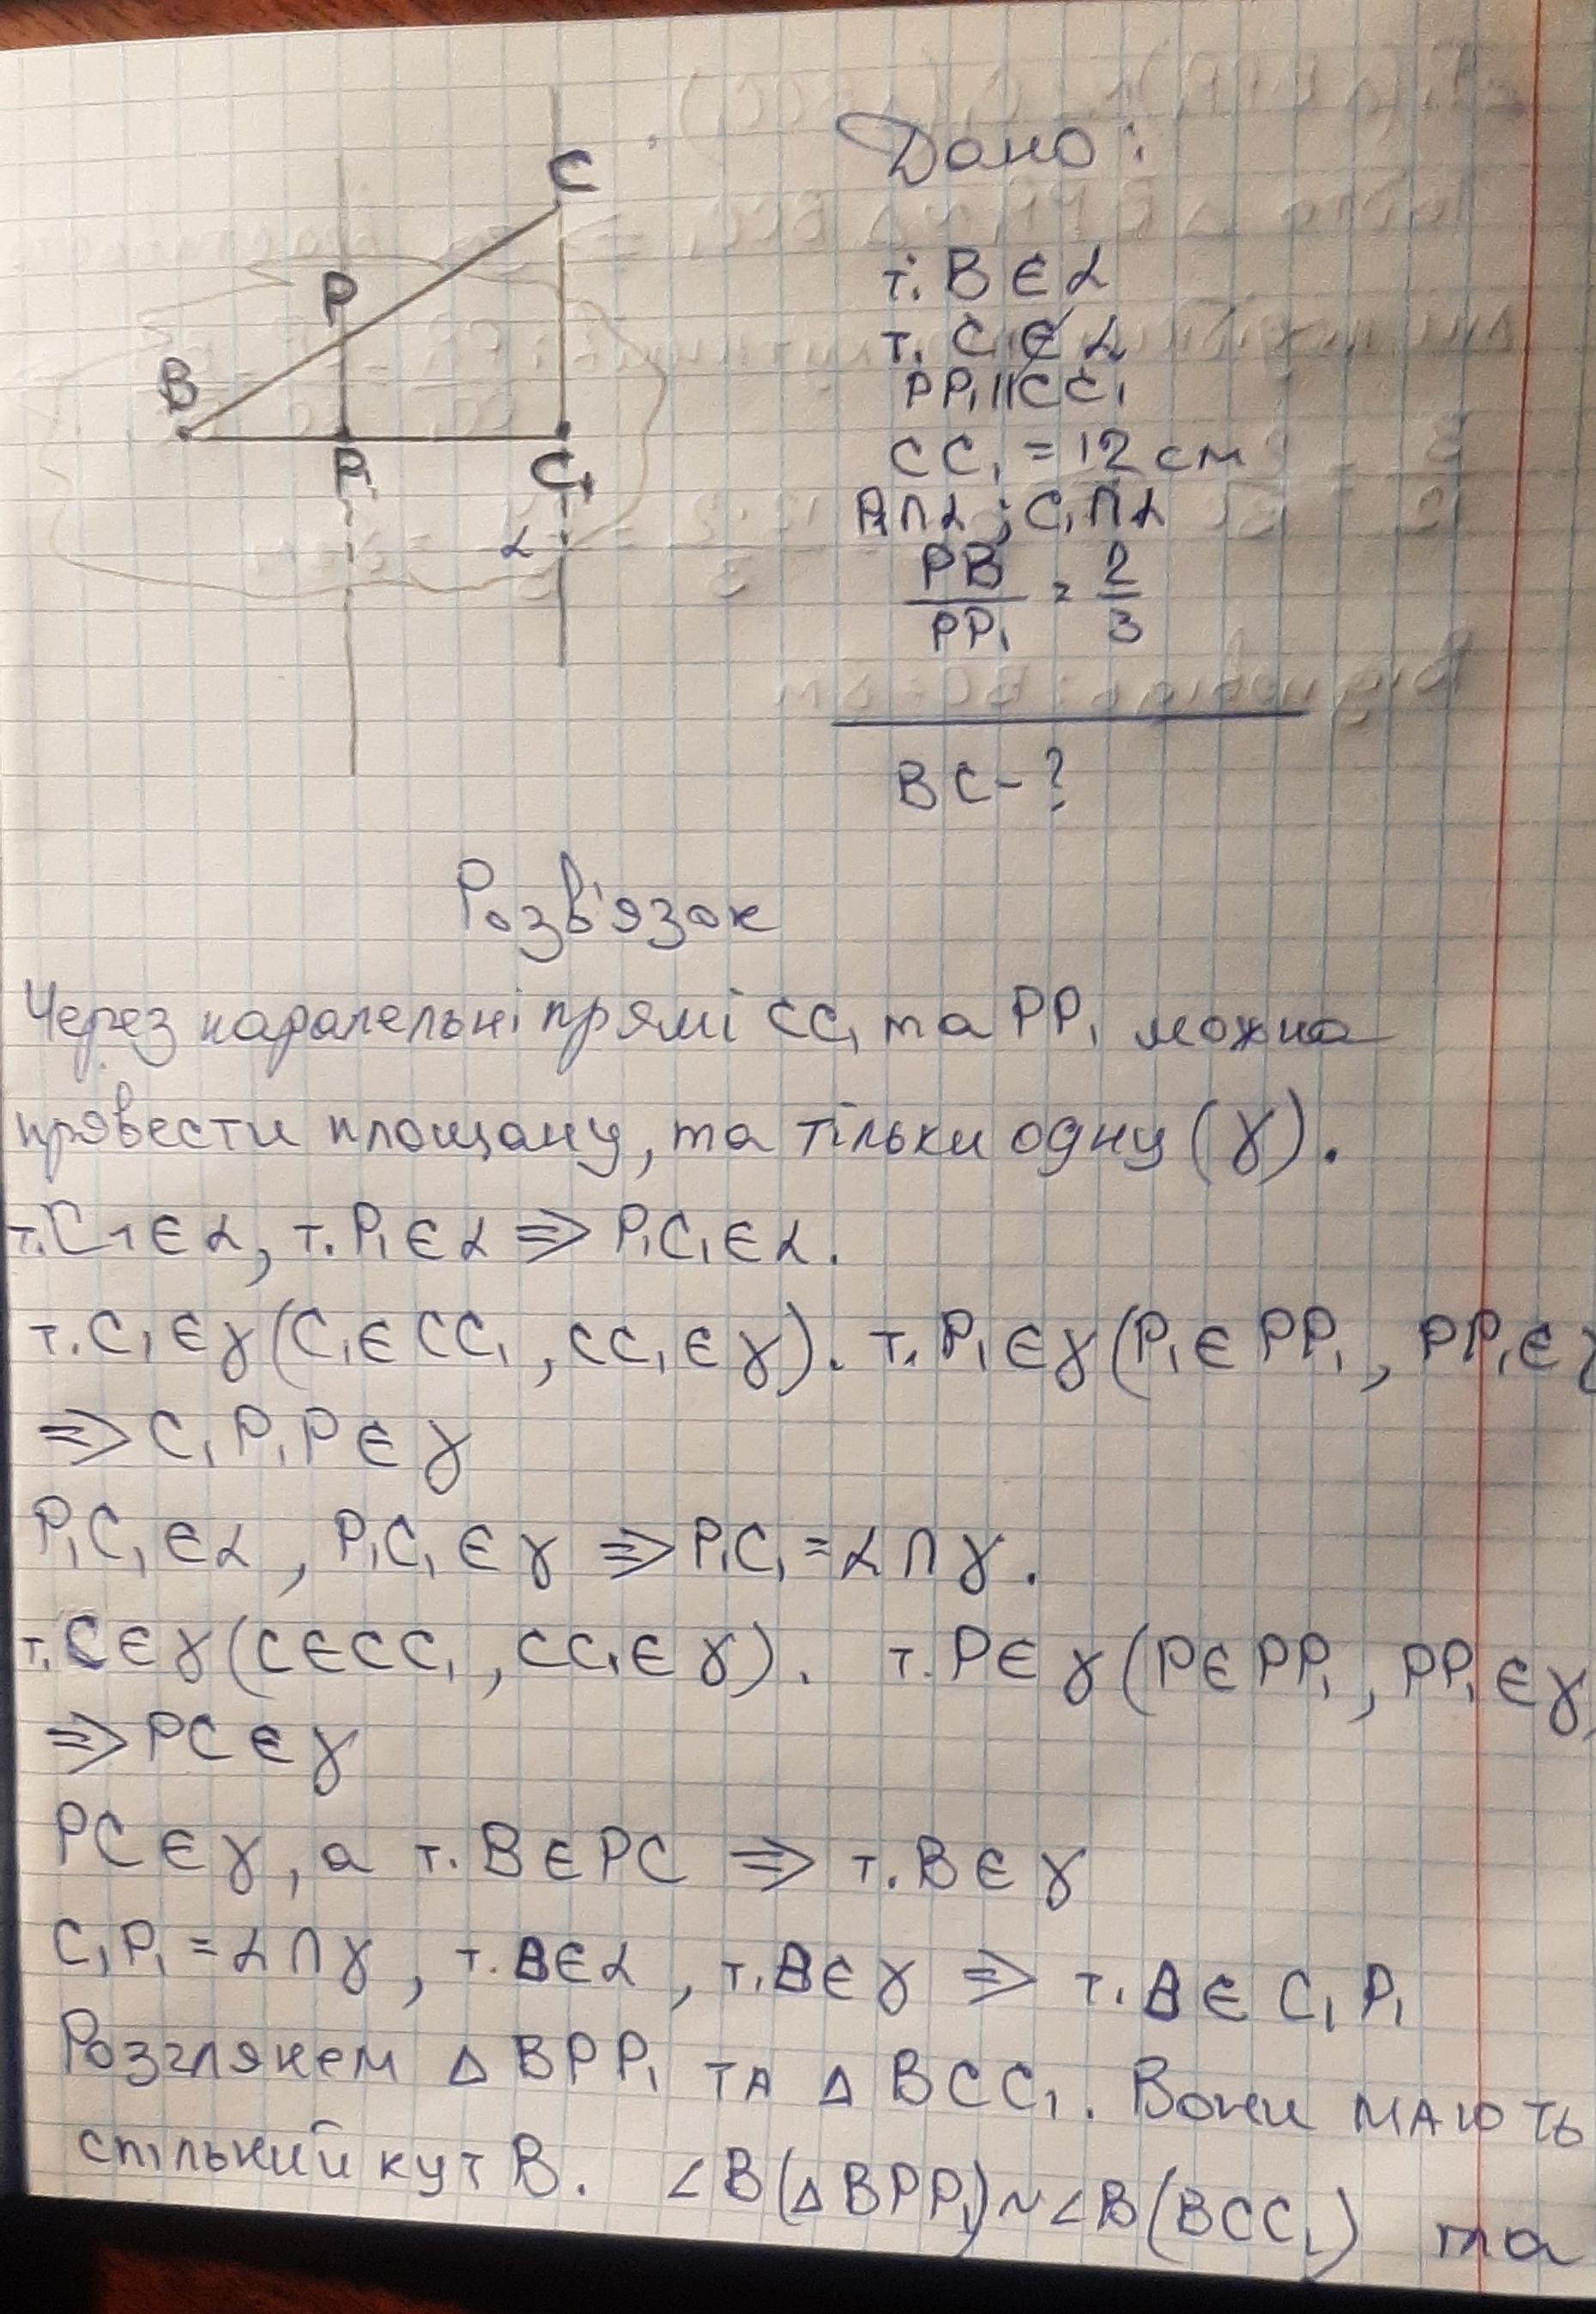 C
P
B
P₁
C₁
α
Дано:
т. B ∈ α
т. C ∉ α
PP₁ || CC₁
CC₁ = 12 см
P₁∩α ; C₁∩α
PB/PP₁ = 2/3
BC - ?
Розв'язок
Через паралельні прямі CC₁ та PP₁ можна
провести площину, та тільки одну (γ).
т. C₁ ∈ α, т. P₁ ∈ α ⇒ P₁C₁ ∈ α.
т. C₁ ∈ γ (C₁ ∈ CC₁, CC₁ ∈ γ). т. P₁ ∈ γ (P₁ ∈ PP₁, PP₁ ∈ γ
⇒ C₁P₁P ∈ γ
P₁C₁ ∈ α, P₁C₁ ∈ γ ⇒ P₁C₁ = α ∩ γ.
т. C ∈ γ (C ∈ CC₁, CC₁ ∈ γ). т. P ∈ γ (P ∈ PP₁, PP₁ ∈ γ)
⇒ PC ∈ γ
PC ∈ γ, а т. B ∈ PC ⇒ т. B ∈ γ
C₁P₁ = α ∩ γ, т. B ∈ α, т. B ∈ γ ⇒ т. B ∈ C₁P₁
Розглянем Δ BPP₁ та Δ BCC₁. Вони мають
спільний кут B. ∠B (Δ BPP₁) ~ ∠B (BCC₁) та